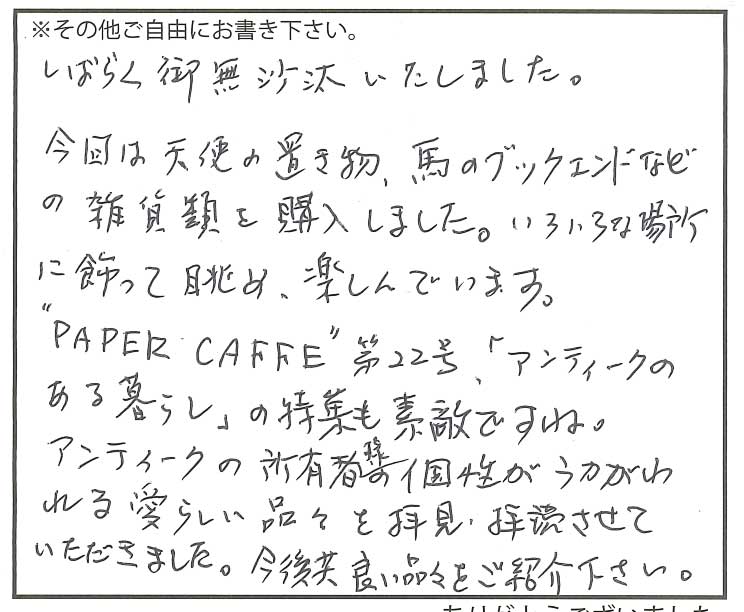 ※その他ご自由にお書き下さい。
しばらく御無沙汰いたしました。
今回は天使の置き物、馬のブックエンドなど
の雑貨類を購入しました。いろいろな場所
に飾って眺め、楽しんでいます。
“PAPER CAFFE”第22号、「アンティークの
ある暮らし」の特集も素敵ですね。
アンティークの所有者様の個性がうかがわ
れる愛らしい品々を拝見・拝読させて
いただきました。今後共良い品々をご紹介下さい。